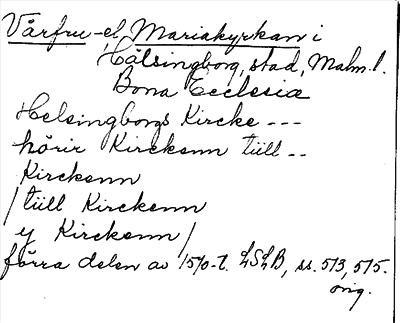 Vårfru- el. Mariakyrkan i
Hälsingborg, stad, Malm. l.
Bona Ecclesia
Helsingborgs Kircke ---
hörir Kirckenn tüll --
Kirckenn
/ tüll Kirckenn
y Kirckenn /
förra delen av 1570-t. LSLB, ss. 573, 575.
orig.